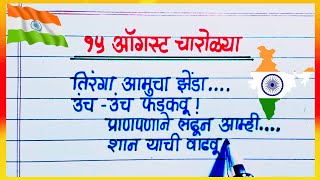 १५ ऑगस्ट चारोळ्या
तिरंगा आमुचा झेंडा....
उंच-उंच फडकवू!
प्राणपणाने लढून आम्ही....
शान याची वाढवू